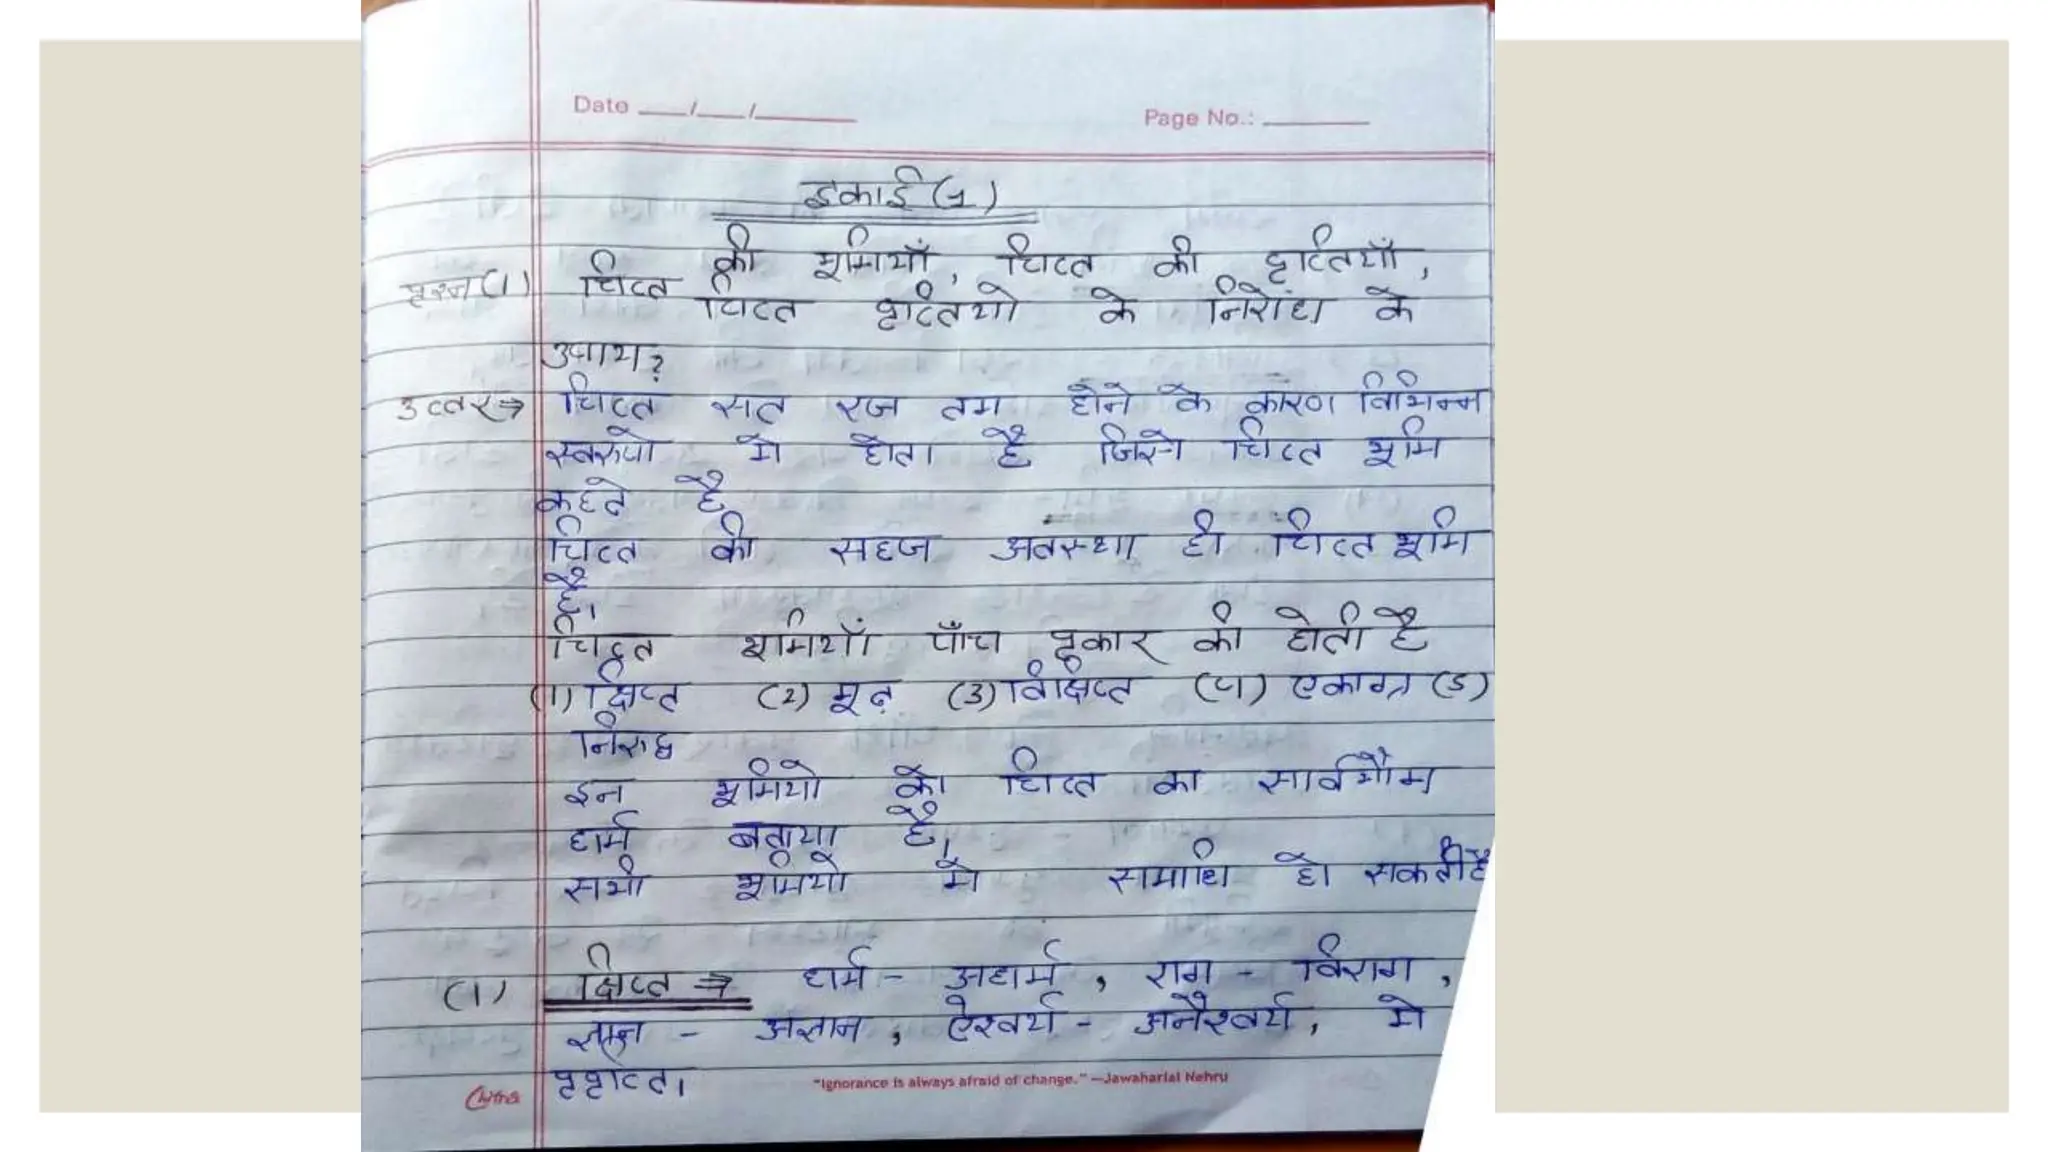 Date ___/___/______ Page No.: ______
इकाई (1)
प्रश्न (1) चित्त की भूमियाँ, चित्त की वृत्तियाँ,
चित्त वृत्तियो के निरोध के
उपाय?
उत्तर⇒ चित्त सत रज तम होने के कारण विभिन्न
स्वरुपो मे होता है जिसे चित्त भूमि
कहते है
चित्त की सहज अवस्था ही चित्त भूमि
है।
चित्त भूमियाँ पाँच प्रकार की होती है
(1) क्षिप्त (2) मूढ़ (3) विक्षिप्त (4) एकाग्र (5)
निरुद्ध
इन भूमियो को चित्त का सार्वभौम
धर्म बताया है।
सभी भूमियो मे समाधि हो सकती है
(1) क्षिप्त ⇒ धर्म - अधर्म, राग - विराग,
ज्ञान - अज्ञान, ऐश्वर्य - अनैश्वर्य, मे
प्रवृत्ति।
"Ignorance is always afraid of change." —Jawaharlal Nehru